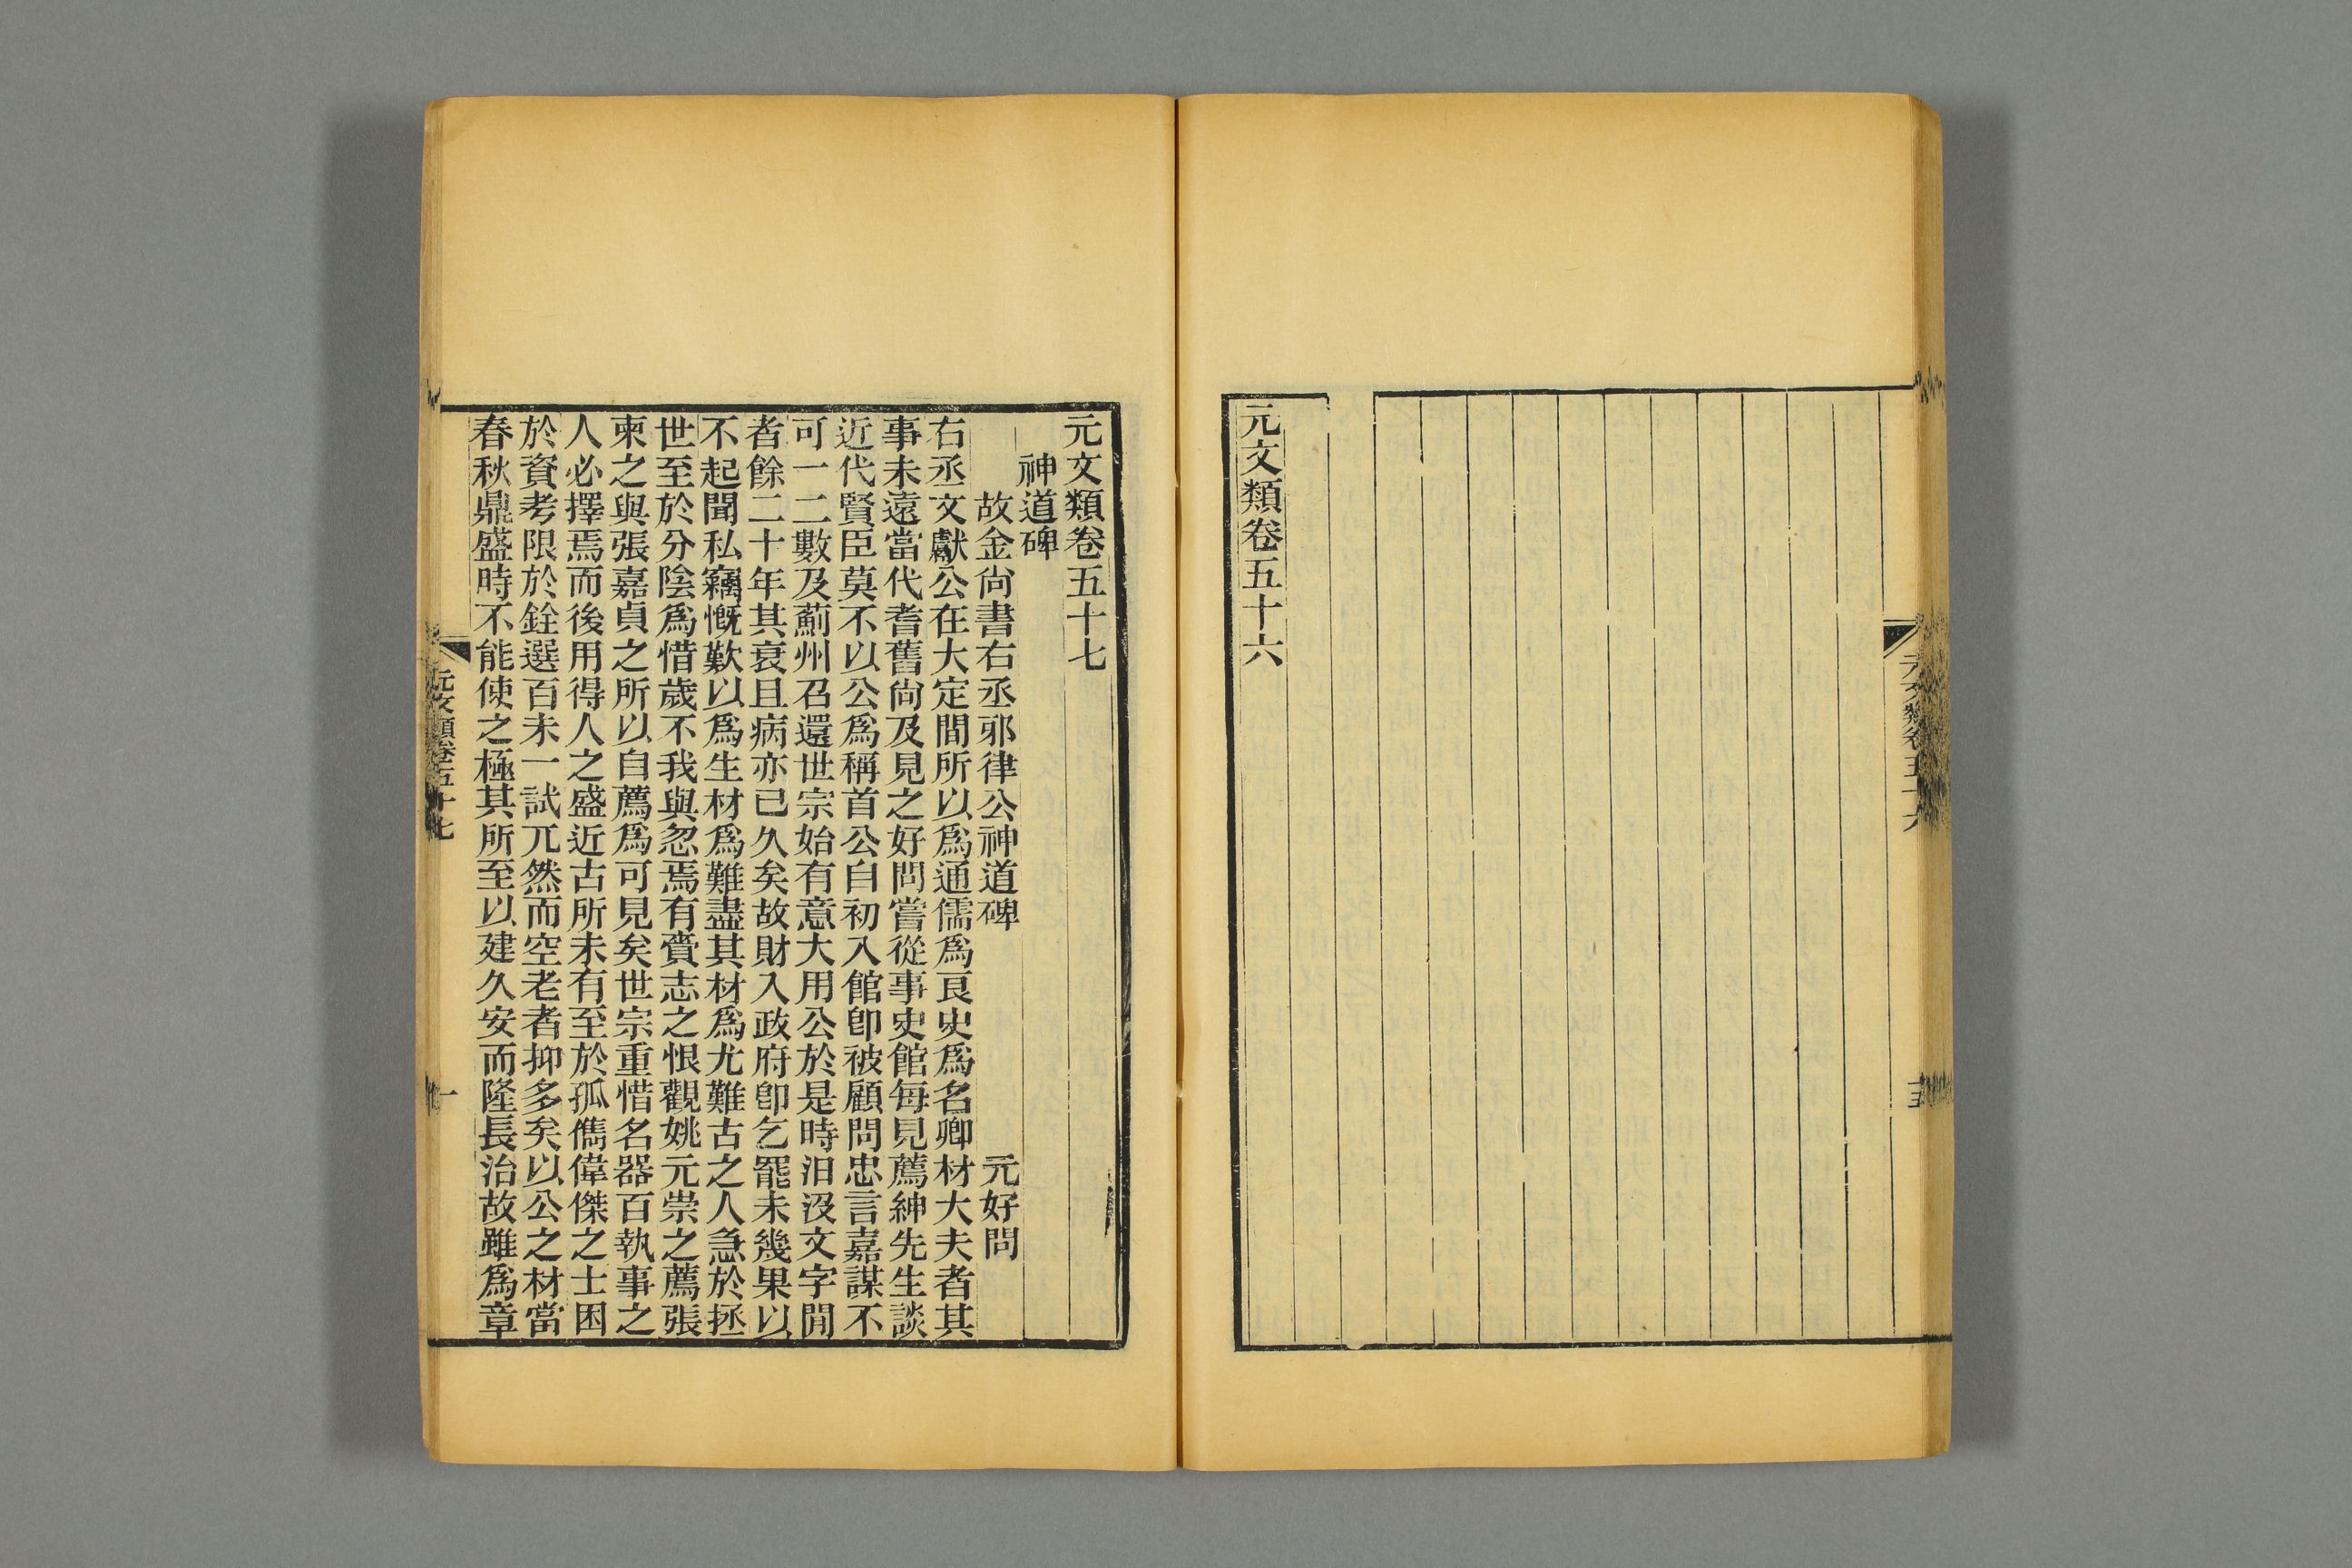 元文類卷五十六
元文類卷五十七
神道碑
故金尚書右丞耶律公神道碑 元好問
右丞文獻公在大定間所以爲通儒爲良史爲名卿材大夫者其
事未遠當代耆舊尚及見之好問嘗從事史館每見薦紳先生談
近代賢臣莫不以公爲稱首公自初入館卽被顧問忠言嘉謀不
可一二數及薊州召還世宗始有意大用公於是時汨沒文字閒
者餘二十年其衰且病亦已久矣故財入政府卽乞罷未幾果以
不起聞私竊慨歎以爲生材爲難盡其材爲尤難古之人急於拯
世至於分陰爲惜歲不我與忽焉有賫志之恨觀姚元崇之薦張
柬之與張嘉貞之所以自薦爲可見矣世宗重惜名器百執事之
人必擇焉而後用得人之盛近古所未有至於孤儁偉傑之士困
於資考限於銓選百未一試兀然而空老者抑多矣以公之材當
春秋鼎盛時不能使之極其所至以建久安而隆長治故雖爲章
元文類卷五十七
一